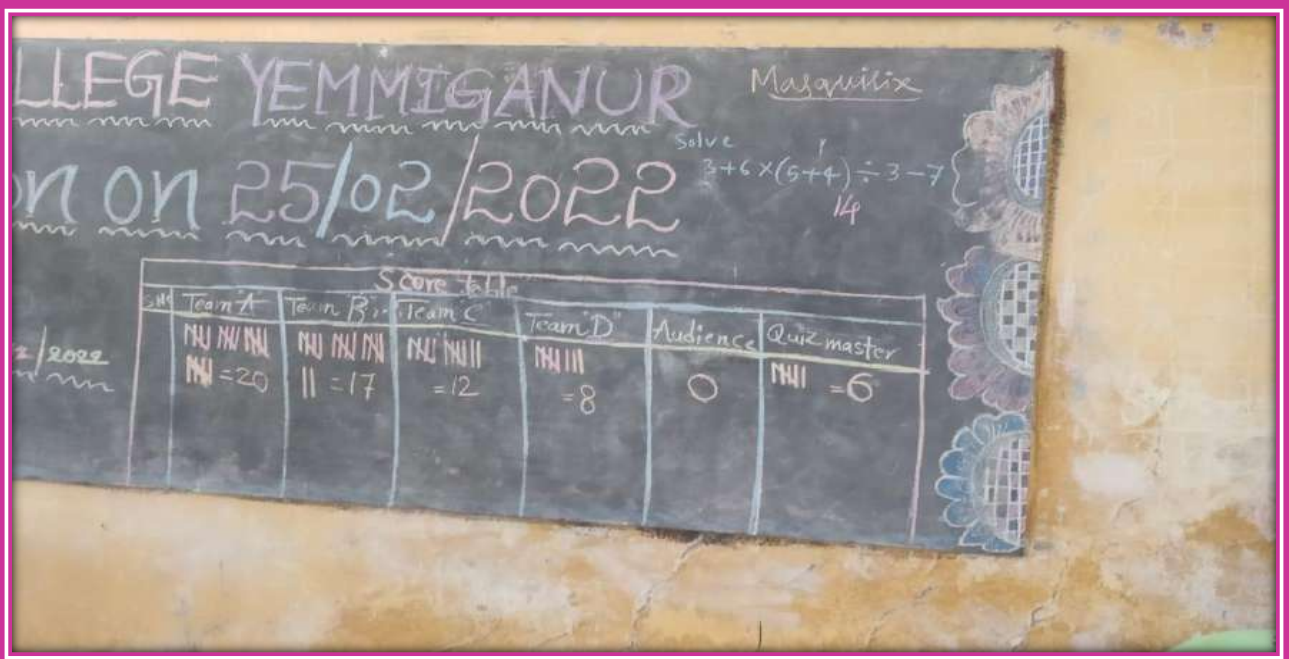 LLEGE YEMMIGANUR
Masquilix
on on 25/02/2022
Solve
3+6×(5+4)÷3-7
14
Score table
SNo Team "A" Team B Team "C" Team "D" Audience Quiz master
/2022
=20 || =17 =12 =8 0 =6